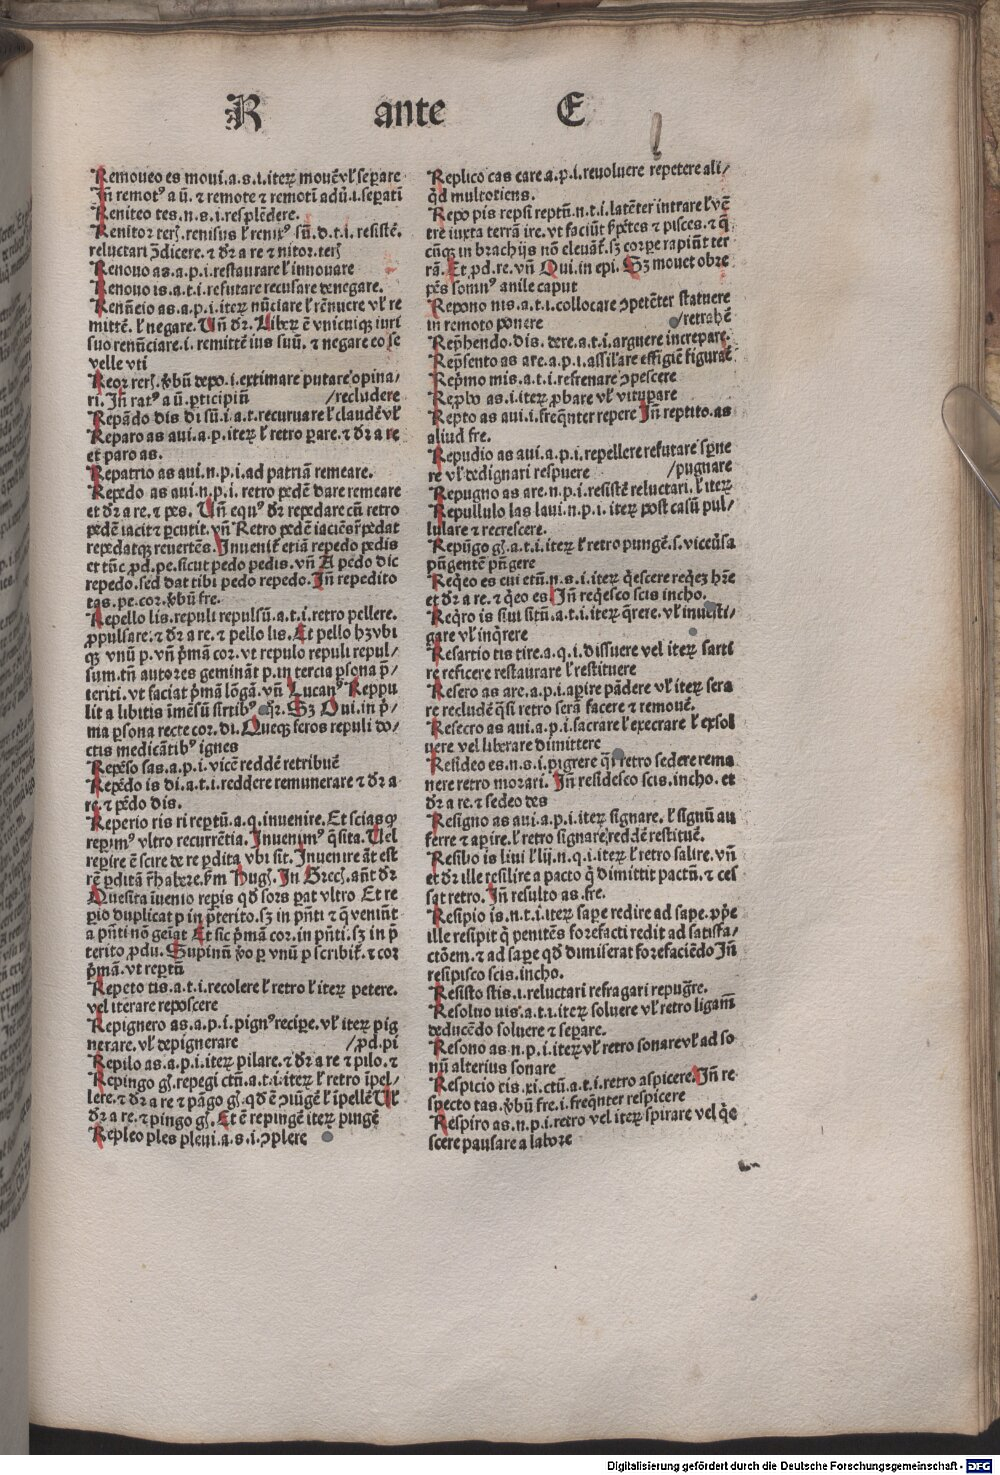 R ante E
Remoueo es moui.a.s.i.iteꝝ mouē vł separe
Jñ remotꝰ a ū. ⁊ remote ⁊ remotī adū.i.sepatī
Reniteo tes.n.s.i.resplēdere.
Renitor terʒ.renisus ł renixꝰ sū.d.t.i. resistē.
reluctari ɔ̄dicere. ⁊ dr̄ a re ⁊ nitor.terʒ
Renouo as.a.p.i.restaurare ł innouare
Renouo is.a.t.i.refutare recusare denegare.
Renūcio as.a.p.i.iteꝝ nūciare ł rēnuere vł re
mittē. ł negare. Vñ dr̄. Liberꝝ ē vnicuiqꝫ iuri
suo renūciare.i. remittē ius suū. ⁊ negare eo se
velle vti
Reor rerʒ. v̄bū depo.i.extimare putare opina/
ri. Jñ ratꝰ a ū. ꝑticipiū /recludere
Repādo dis di sū.i.a.t.recuruare ł claudē vł
Reparo as aui.a.p.iteꝝ ł retro ꝑare. ⁊ dr̄ a re
et paro as.
Repatrio as aui.n.p.i.ad patriā remeare.
Repedo as aui.n.p.i. retro pedē dare remeare
et dr̄ a re. ⁊ pes. Vñ equꝰ dr̄ repedare cū retro
pedē iacit ⁊ ꝑcutit. vñ Retro pedē iaciēs r̄pedat
repedatqꝫ reuertēs. Jnuenit̄ etiā repedo pedis
et tūc ꝓd.pe.sicut pedo pedis. vñ A pedo dic
repedo.sed dat tibi pedo repedo. Jñ repedito
tas.pe.cor.v̄bū fre.
Repello lis.repuli repulsū.a.t.i.retro pellere.
ꝓpulsare. ⁊ dr̄ a re. ⁊ pello lis. Et pello hʒ vbi
qꝫ vnū p. vñ p̄mā cor. vt repulo repuli repul/
sum.tn̄ autores gemināt p. in tercia ꝑsona p̄/
teriti. vt faciat p̄mā lōgā. vñ Lucanꝰ Reppu
lit a libitis īmēsū sirtibꝰ eq̄r. Sʒ Oui. in p̄/
ma ꝑsona recte cor. di. Queqꝫ feros repuli do/
ctis medicātibꝰ ignes
Repēso sas.a.p.i. vicē reddē retribuē
Repēdo is di.a.t.i.reddere remunerare ⁊ dr̄ a
re. ⁊ pēdo dis.
Reperio ris ri reꝑtū.a.q.inuenire. Et scias ꝙ
reꝑimꝰ vltro recurrētia. Jnuenimꝰ q̄sita. Vel
reꝑire ē scire de re ꝑdita vbi sit. Jnuenire āt est
rē ꝑditā r̄habere. s̄m Hugʒ. Jn Grecʒ. ant̄ dr̄
Quesita īuenio reꝑis qd̄ sors ꝑat vltro Et re
ꝑio duplicat p in p̄terito. sʒ in p̄nti ⁊ q̄ veniūt
a p̄nti nō gemāt Et sic p̄mā cor. in p̄nti. sʒ in p̄
terito ꝓdu. Supinū v̄o ꝑ vnū p scribit̄. ⁊ cor
p̄mā. vt reꝑtū
Repeto tis.a.t.i.recolere ł retro ł iteꝝ petere.
vel iterare reposcere
Repignero as.a.p.i.pignꝰ recipe. vł iteꝝ pig
nerare. vł depignerare /ꝓd.pi
Repilo as.a.p.i.iteꝝ pilare. ⁊ dr̄ a re ⁊ pilo. ⁊
Repingo gʒ.repegi ctū.a.t.i.iteꝝ ł retro īpel/
lere. ⁊ dr̄ a re ⁊ pāgo gʒ. qd̄ ē ɔiūgē ł īpellē Vł
dr̄ a re. ⁊ pingo gʒ. Et ē repingē iteꝝ pingē
Repleo ples pleui.a.s.i.ɔplere
Replico cas care a.p.i. reuoluere repetere ali/
qd̄ multotiens.
Repo pis repsi reptū.n.t.i.latēter intrare ł vē
tre iuxta terrā ire. vt faciūt ßpētes ⁊ pisces. ⁊ q̄
cūqꝫ in brachijs nō eleuāt̄. sʒ corpe rapiūt ter
rā. Et ꝓd.re. vñ Qui. in epi. Sʒ mouet obre
pēs somnꝰ anile caput
Repono nis.a.t.i.collocare ɔpetēter statuere
in remoto ponere /retrahē
Rephendo.dis.dere.a.t.i.arguere increpare.
Repsento as are.a.p.i.assilare effigiē figurare
Repmo mis.a.t.i.refrenare ɔpescere
Reꝓbo as.i.iteꝝ ꝓbare vł vituꝑare
Repto as aui.i.freqnter repere Jñ reptito.as
aliud fre.
Repudio as aui.a.p.i.repellere refutare spne
re vł dedignari respuere /pugnare
Repugno as are.n.p.i.resistē reluctari. ł iteꝝ
Repullulo las laui.n.p.i. iteꝝ post casū pul/
lulare ⁊ recrescere.
Repūgo gʒ.a.t.i.iteꝝ ł retro pungē.s.viceūsa
pūgentē pūgere
Reqeo es eui etū.n.s.i.iteꝝ q̄escere req̄eʒ hr̄e
et dr̄ a re. ⁊ q̄eo es Jñ req̄esco scis incho.
Reqro is siui sitū.a.t.i.iteꝝ q̄rere. vł inuesti/
gare vł inq̄rere
Resartio tis tire.a.q.i.dissuere vel iteꝝ sarti
re reficere restaurare ł restituere
Resero as are.a.p.i.aꝑire pādere vł iteꝝ sera
re recludē q̄si retro serā facere ⁊ remouē.
Resecro as aui.a.p.i.sacrare ł execrare ł exsol
uere vel liberare dimittere
Resideo es.n.s.i.pigrere q̄si retro sedere rema
nere retro morari. Jñ residesco scis.incho. et
dr̄ a re. ⁊ sedeo des
Resigno as aui.a.p.i.iteꝝ signare. ł signū au
ferre ⁊ aꝑire. ł retro signare reddē restituē.
Resilio is liui ł lij.n.q.i.iteꝝ ł retro salire. vñ
et dr̄ ille resilire a pacto q̄ dimittit pactū. ⁊ ces
sat retro. Jñ resulto as.fre.
Resipio is.n.t.i.iteꝝ sape redire ad sape. ꝓpe
ille resipit q̄ penitēs forefacti redit ad satisfa/
ctōem. ⁊ ad sape qd̄ dimiserat forefaciēdo Jñ
resipisco scis.incho.
Resisto stis.i.reluctari refragari repugr̄e.
Resoluo uis.a.t.i.iteꝝ soluere vł retro ligamē
deducēdo soluere ⁊ separe.
Resono as n.p.i.iteꝝ vł retro sonare vł ad so
nū alterius sonare
Respicio cis.xi.ctū.a.t.i.retro aspicere. Jñ re-
specto tas.v̄bū fre.i.freqnter respicere
Respiro as.n.p.i.retro vel iteꝝ spirare vel q̄e
scere pausare a labore
Digitalisierung gefördert durch die Deutsche Forschungsgemeinschaft - DFG